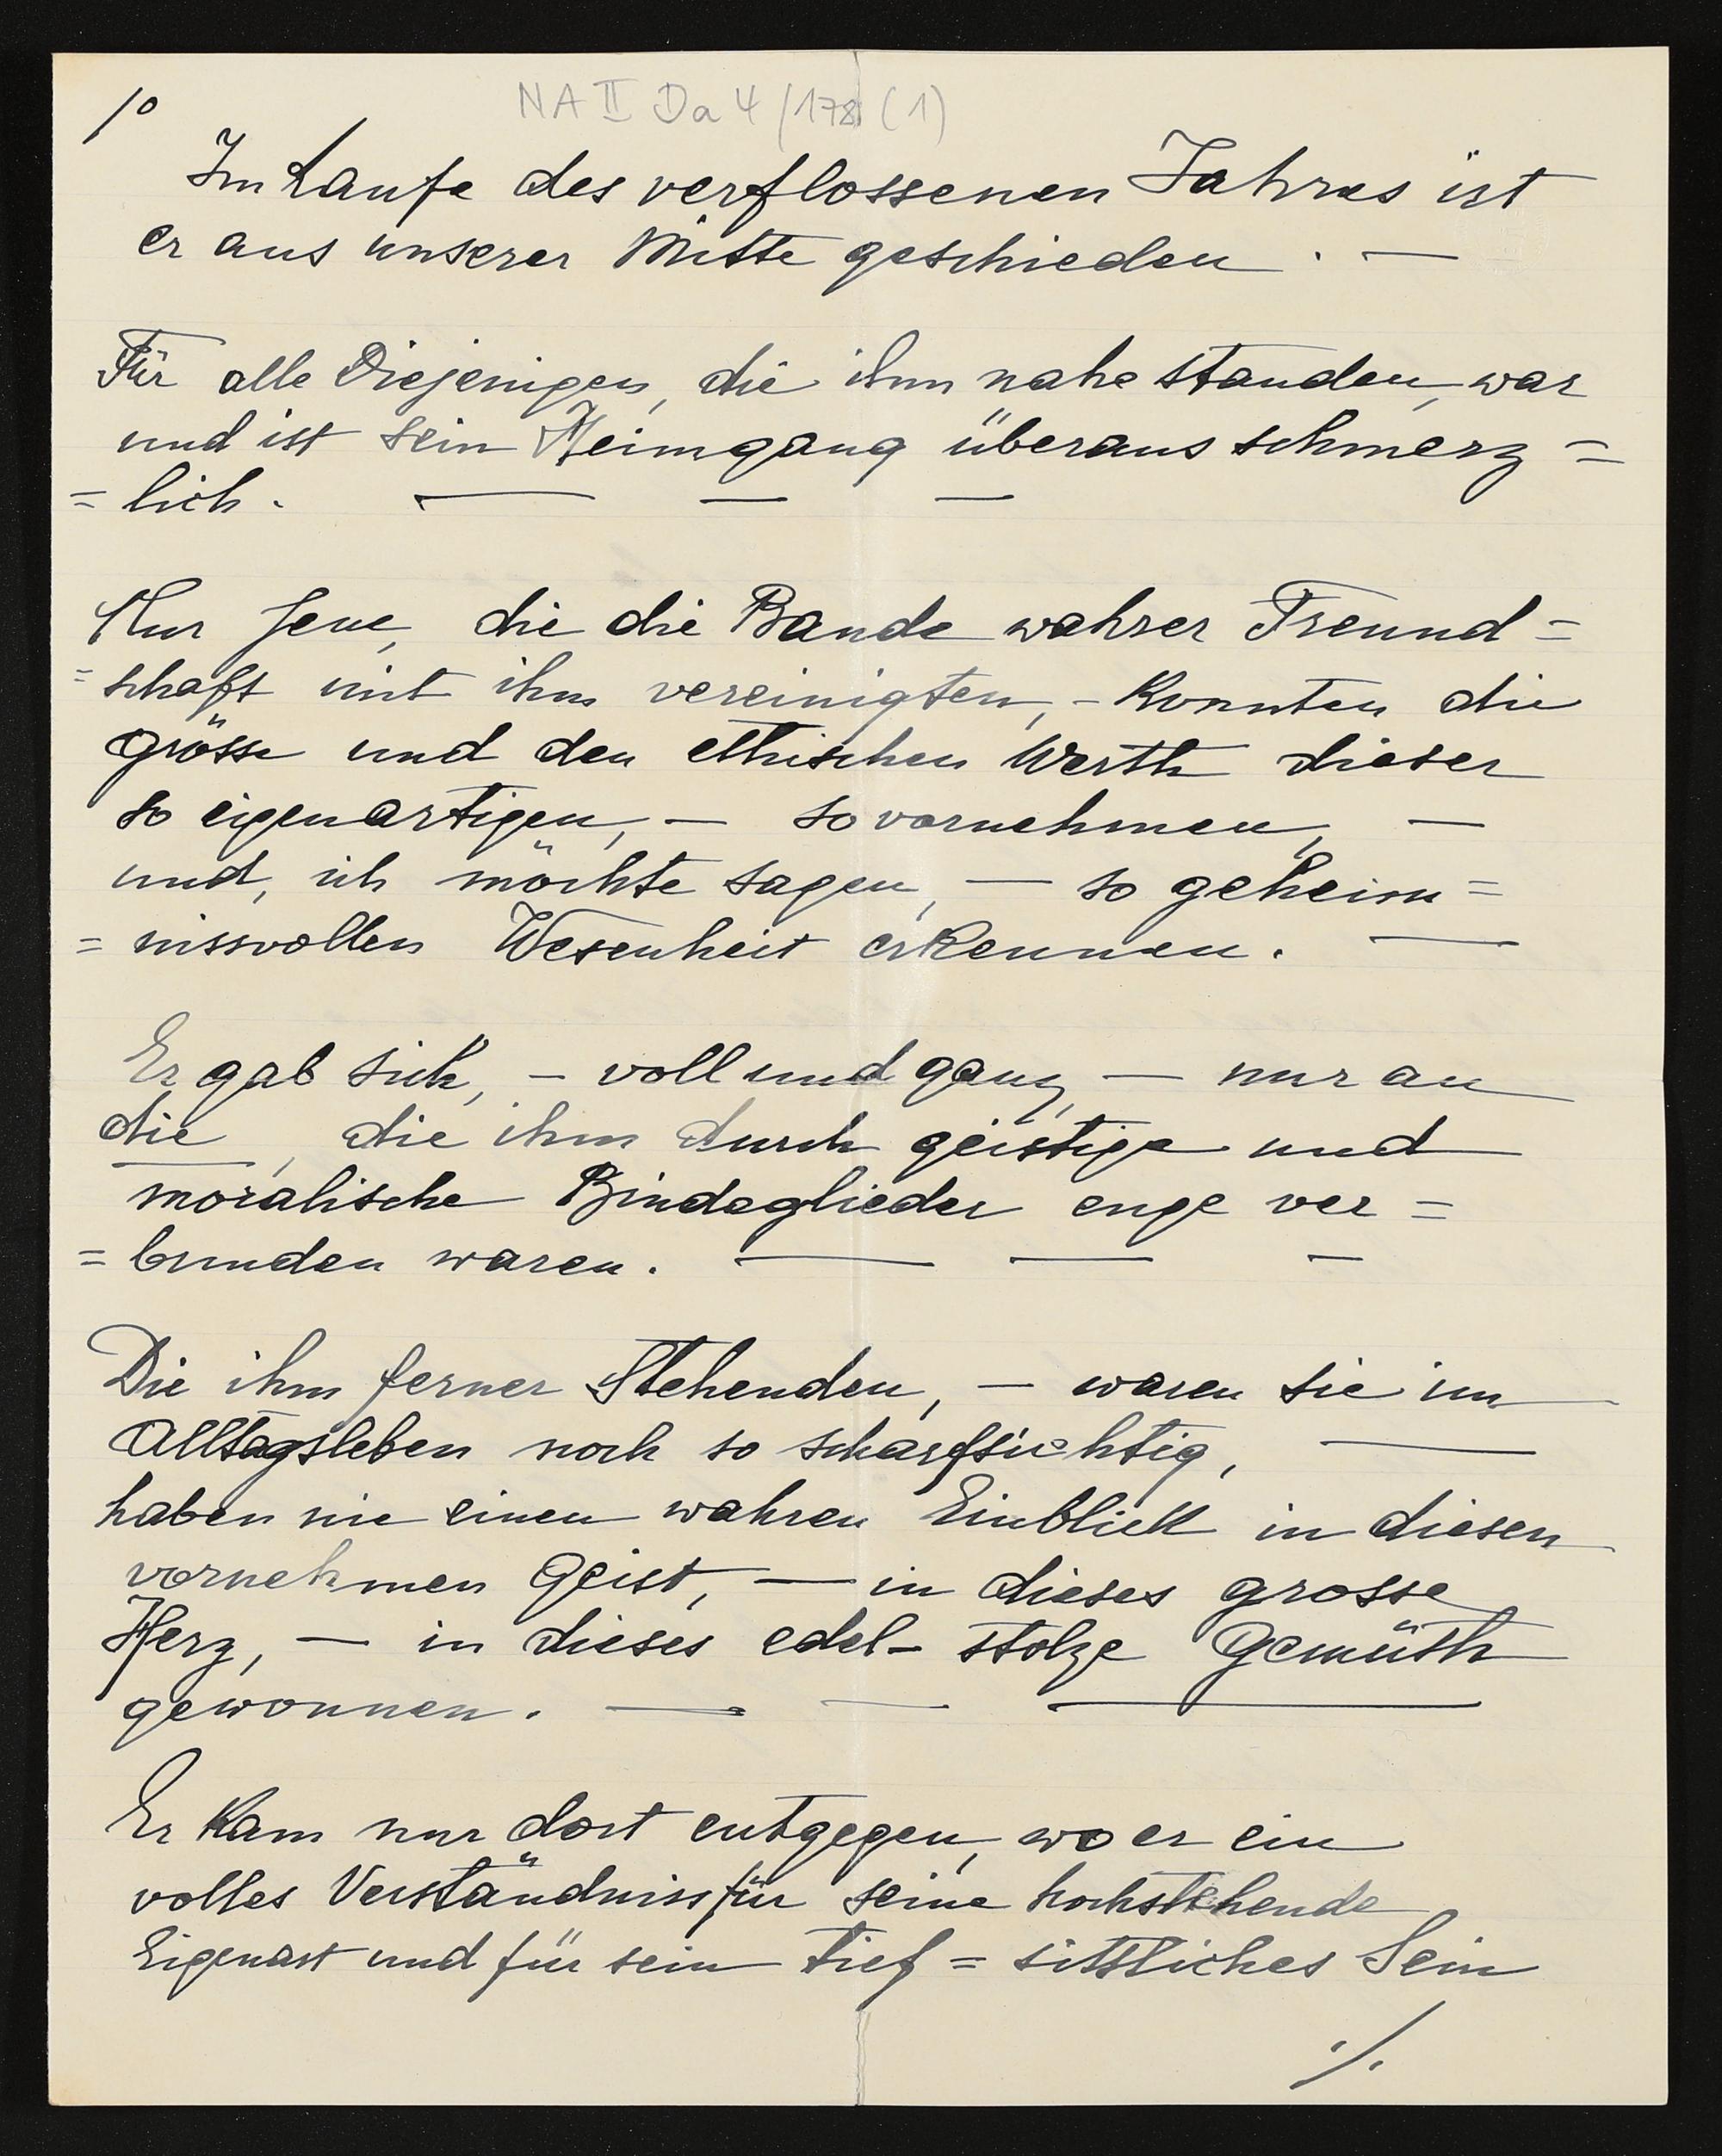 1°
NA II Da 4/178 (1)
Im Laufe des verflossenen Jahres ist
er aus unserer Mitte geschieden. —
Für alle Diejenigen, die ihm nahe standen, war
und ist sein Heimgang überaus schmerz=
=lich. — — —
Nur Jene, die die Bande wahrer Freund=
=schaft mit ihm vereinigten, - konnten die
Grösse und den ethischen Werth dieser
so eigenartigen, — so vornehmen, —
und, ich möchte sagen, — so geheim=
=nissvollen Wesenheit erkennen. —
Er gab sich, — voll und ganz, — nur an
die, die ihm durch geistige und
moralische Bindeglieder enge ver=
=bunden waren. — — —
Die ihm ferner Stehenden, — waren sie im
Alltagsleben noch so scharfsichtig, —
haben nie einen wahren Einblick in diesen
vornehmen Geist, — in dieses grosse
Herz, — in dieses edel-stolze Gemüth
gewonnen. — — —
Er kam nur dort entgegen, wo er ein
volles Verständniss für seine hochstehende
Eigenart und für sein tief=sittliches Sein
./.